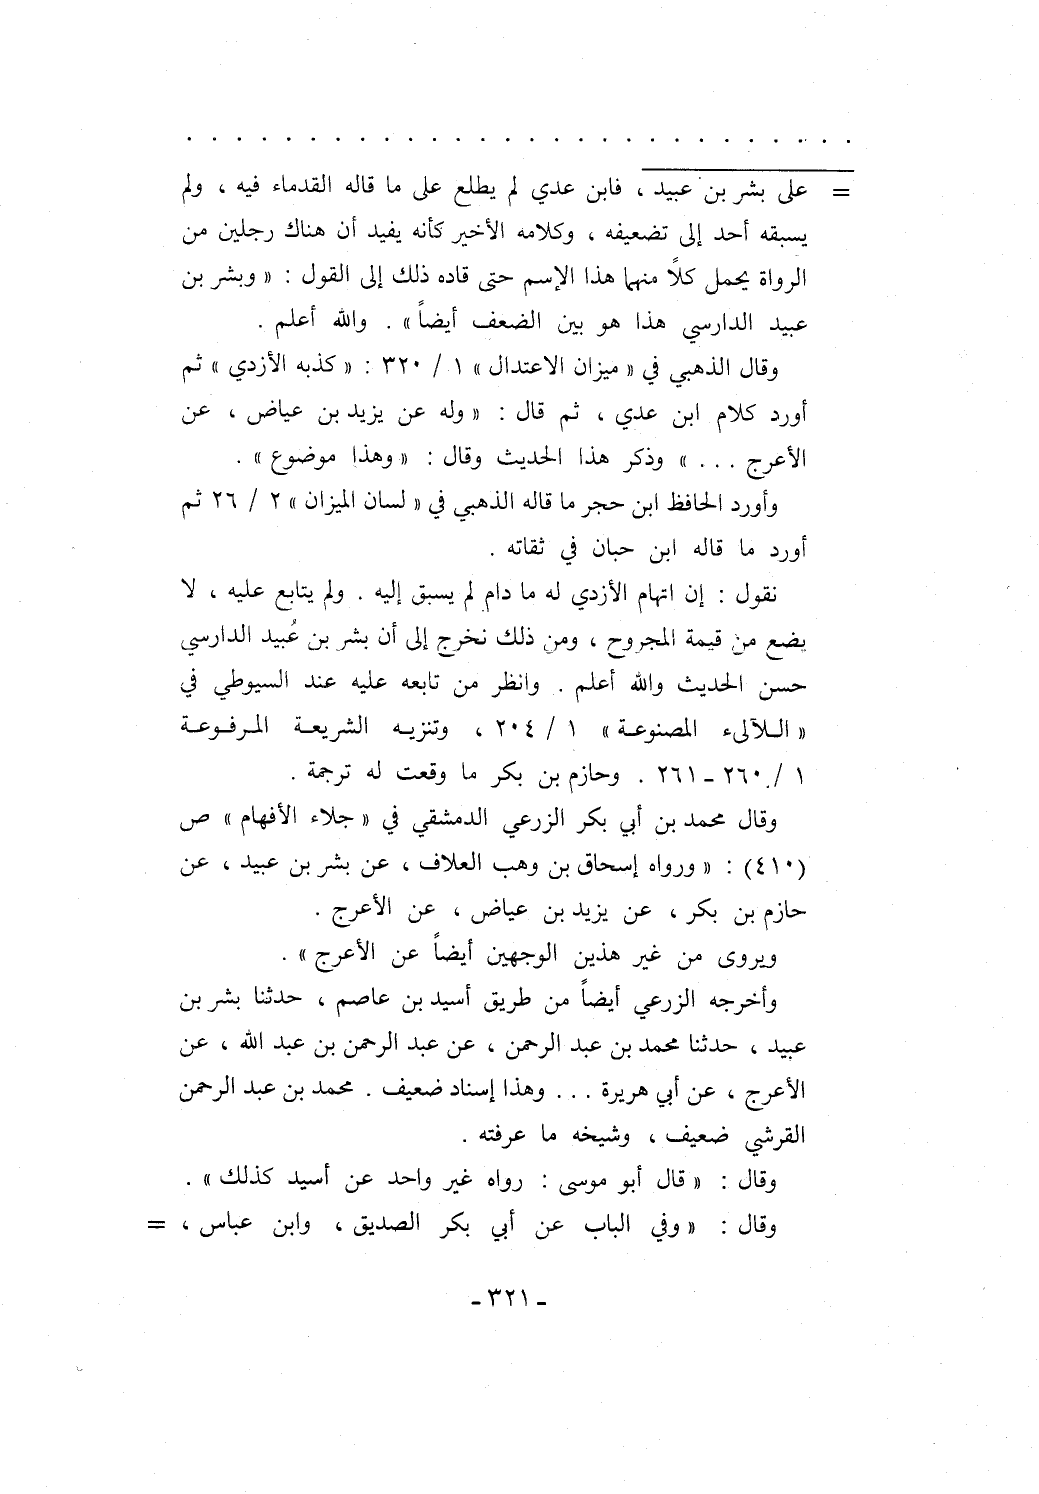 . . . . . . . . . . . . . . . . . . . . . . . . . . . .
= على بشر بن عبيد ، فابن عدي لم يطلع على ما قاله القدماء فيه ، ولم
يسبقه أحد إلى تضعيفه ، وكلامه الأخير كأنه يفيد أن هناك رجلين من
الرواة يحمل كلاً منهما هذا الإسم حتى قاده ذلك إلى القول : « وبشر بن
عبيد الدارسي هذا هو بين الضعف أيضاً » . والله أعلم .
وقال الذهبي في « ميزان الاعتدال » ١ / ٣٢٠ : « كذبه الأزدي » ثم
أورد كلام ابن عدي ، ثم قال : « وله عن يزيد بن عياض ، عن
الأعرج . . . » وذكر هذا الحديث وقال : « وهذا موضوع » .
وأورد الحافظ ابن حجر ما قاله الذهبي في « لسان الميزان » ٢ / ٢٦ ثم
أورد ما قاله ابن حبان في ثقاته .
نقول : إن اتهام الأزدي له ما دام لم يسبق إليه . ولم يتابع عليه ، لا
يضع من قيمة المجروح ، ومن ذلك نخرج إلى أن بشر بن عُبيد الدارسي
حسن الحديث والله أعلم . وانظر من تابعه عليه عند السيوطي في
« اللآلىء المصنوعة » ١ / ٢٠٤ ، وتنزيه الشريعة المرفوعة
١ / ٢٦٠ - ٢٦١ . وحازم بن بكر ما وقعت له ترجمة .
وقال محمد بن أبي بكر الزرعي الدمشقي في « جلاء الأفهام » ص
(٤١٠) : « ورواه إسحاق بن وهب العلاف ، عن بشر بن عبيد ، عن
حازم بن بكر ، عن يزيد بن عياض ، عن الأعرج .
ويروى من غير هذين الوجهين أيضاً عن الأعرج » .
وأخرجه الزرعي أيضاً من طريق أسيد بن عاصم ، حدثنا بشر بن
عبيد ، حدثنا محمد بن عبد الرحمن ، عن عبد الرحمن بن عبد الله ، عن
الأعرج ، عن أبي هريرة . . . وهذا إسناد ضعيف . محمد بن عبد الرحمن
القرشي ضعيف ، وشيخه ما عرفته .
وقال : « قال أبو موسى : رواه غير واحد عن أسيد كذلك » .
وقال : « وفي الباب عن أبي بكر الصديق ، وابن عباس ، =
- ٣٢١ -